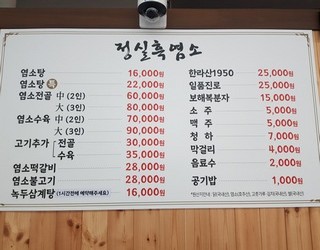 정실흑염소
염소탕 16,000원
염소탕 특 22,000원
염소전골 中 (2인) 60,000원
大 (3인) 80,000원
염소수육 中 (2인) 70,000원
大 (3인) 90,000원
고기추가 전골 30,000원
수육 35,000원
염소떡갈비 28,000원
염소불고기 28,000원
녹두삼계탕 (1시간전에 예약해주세요) 16,000원
한라산1950 25,000원
일품진로 25,000원
보해복분자 15,000원
소 주 5,000원
맥 주 5,000원
청 하 7,000원
막걸리 4,000원
음료수 2,000원
공기밥 1,000원